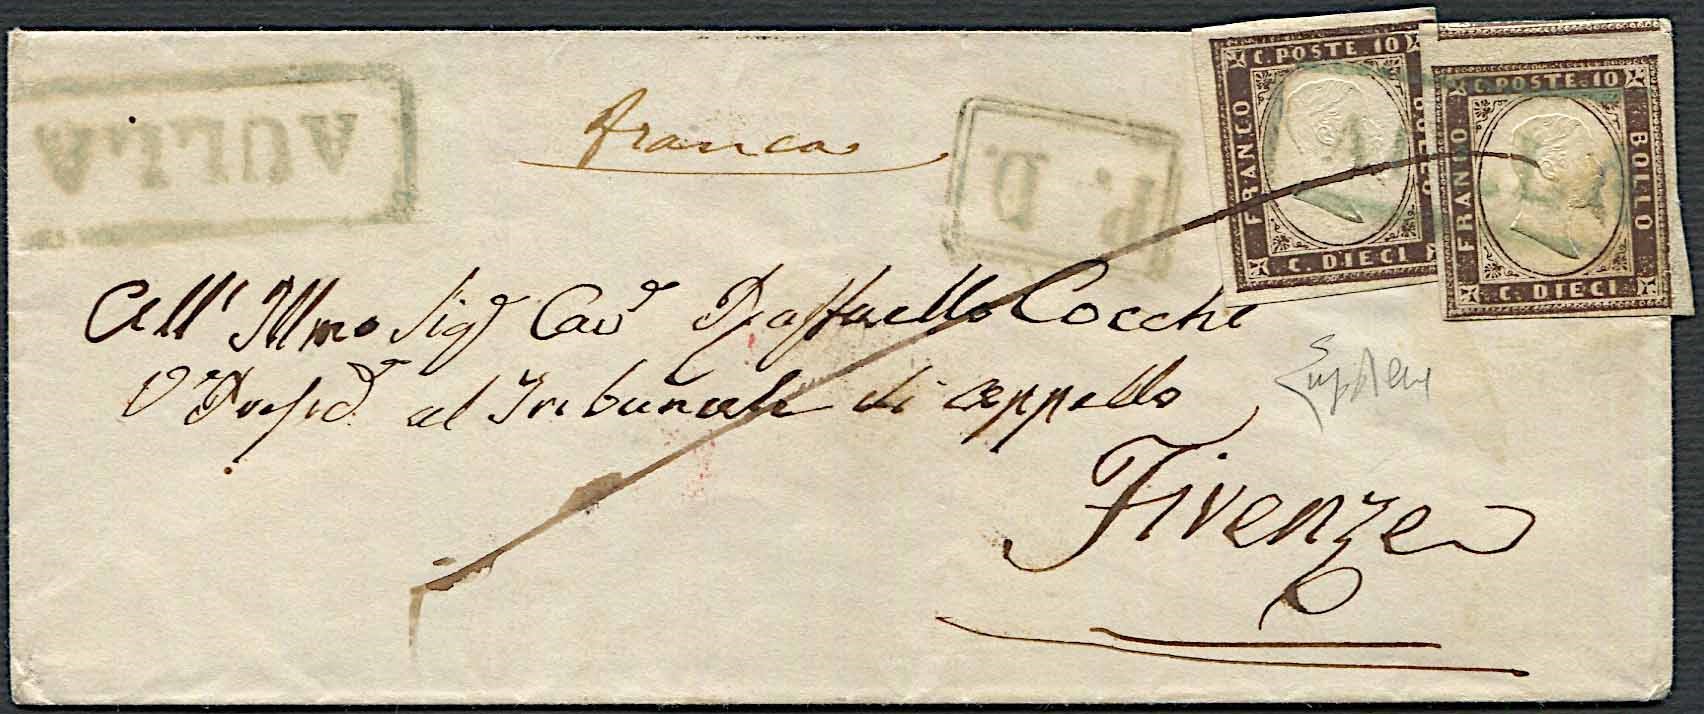 AULLA
franca
P. D.
C. POSTE 10
FRANCO
BOLLO
C. DIECI
C. POSTE. 10
FRANCO
BOLLO
C. DIECI
All' Illmo Sigr Cavr Raffaello Cocchi
V Presid. al Tribunale di appello
Firenze